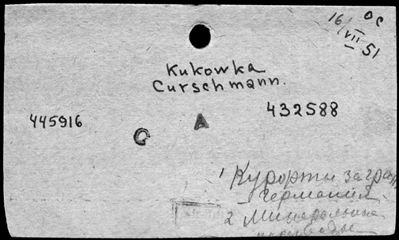 16/VII 51
ОС
Kukowka
Curschmann.
445916
432588
G A
1 Курорты загран
Германия
2 Минеральные